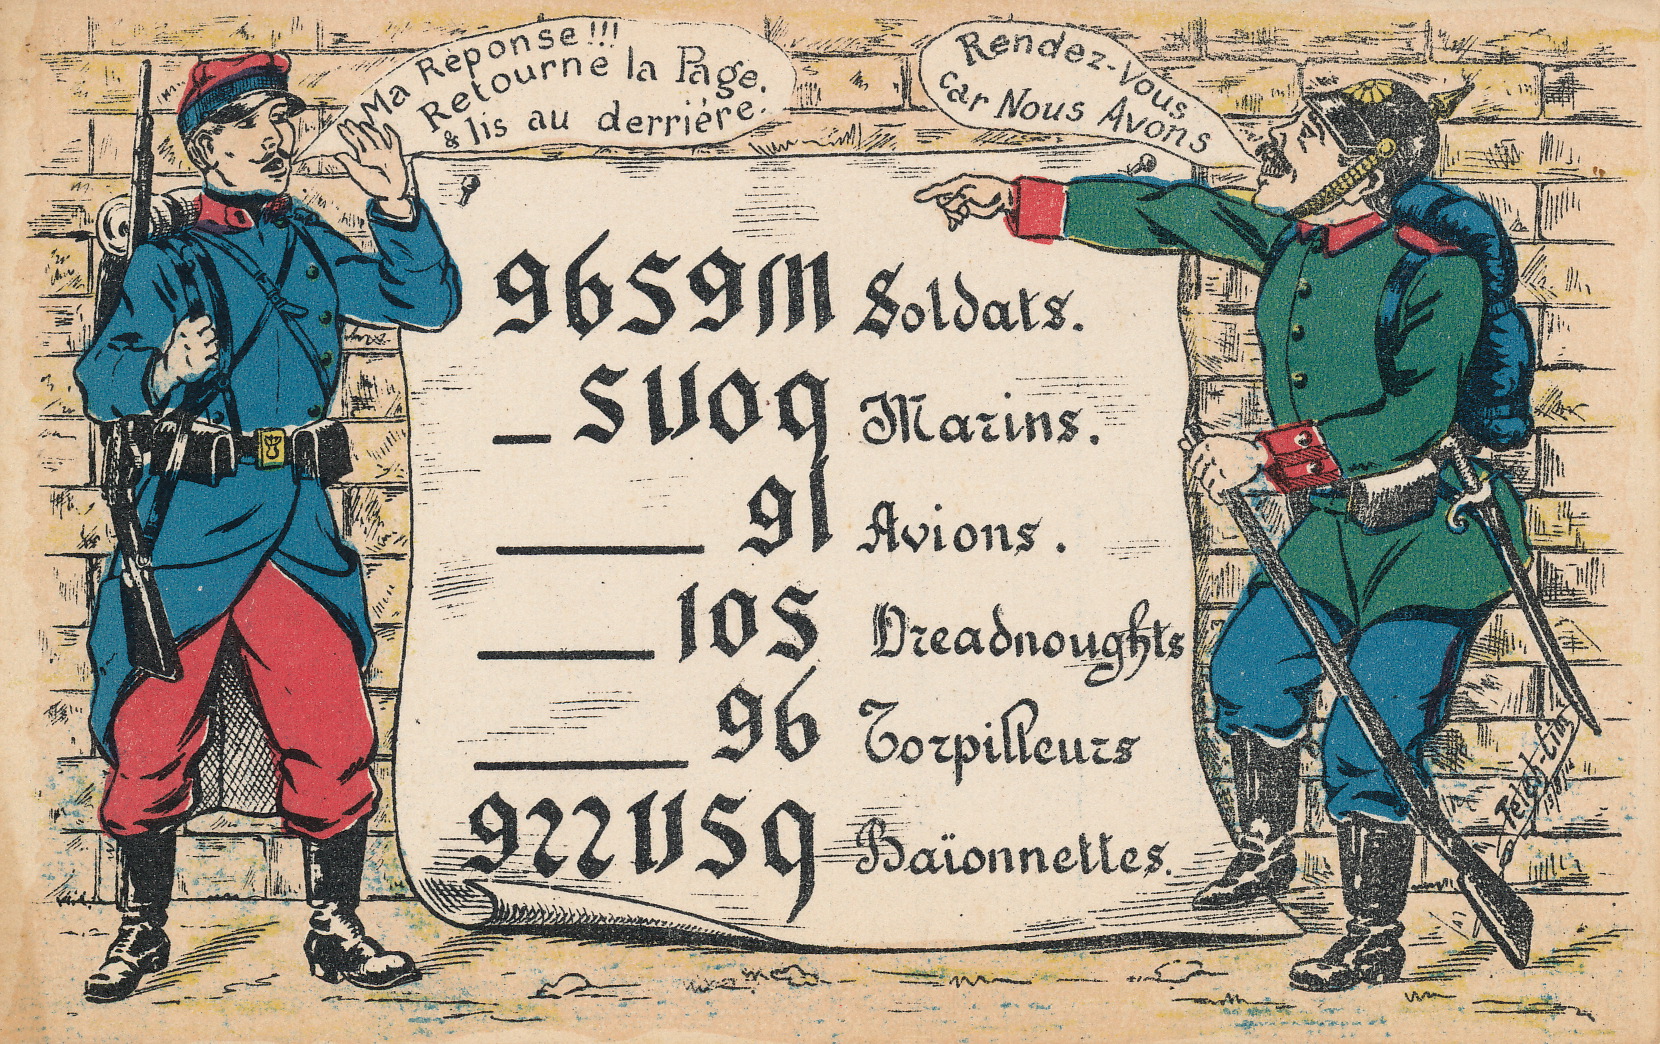 Ma Réponse!!!
Retourne la Page.
& lis au derrière.
Rendez-Vous
Car Nous Avons
9659111 Soldats.
51109 Marins.
91 Avions.
105 Dreadnoughts
96 Torpilleurs
9221159 Baïonnettes.